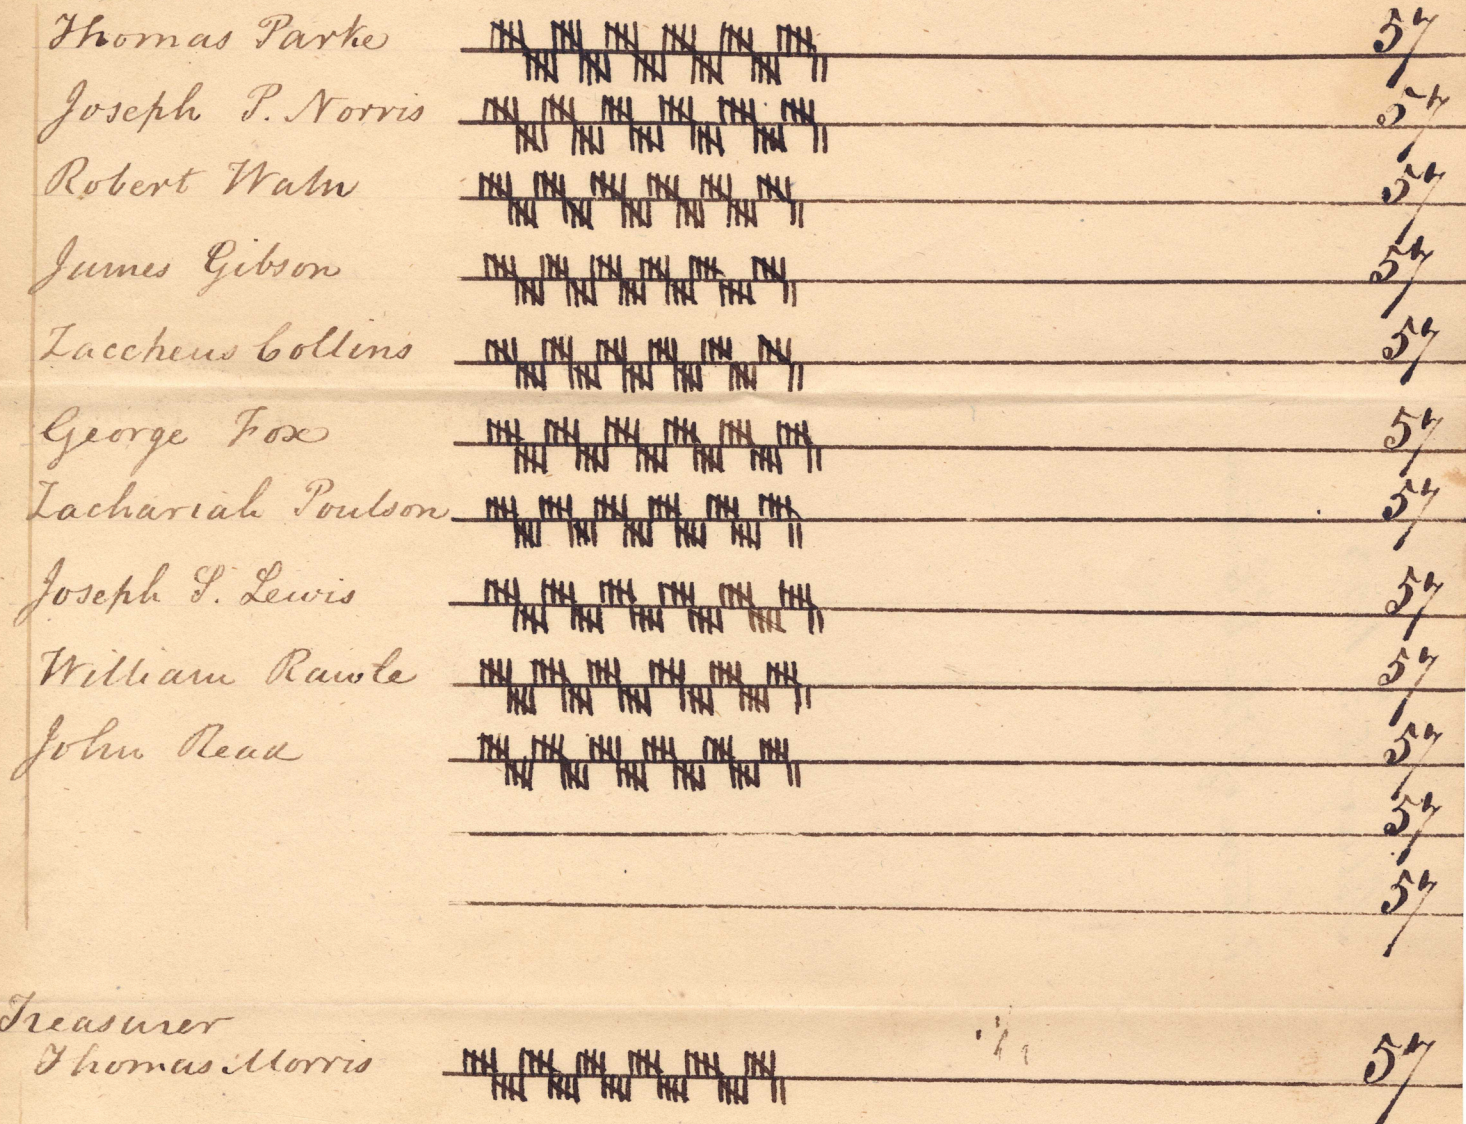 Thomas Parke 57
Joseph P. Norris 57
Robert Waln 57
James Gibson 57
Zaccheus Collins 57
George Fox 57
Zachariah Poulson 57
Joseph S. Lewis 57
William Rawle 57
John Read 57
57
57
Treasurer
Thomas Morris 57